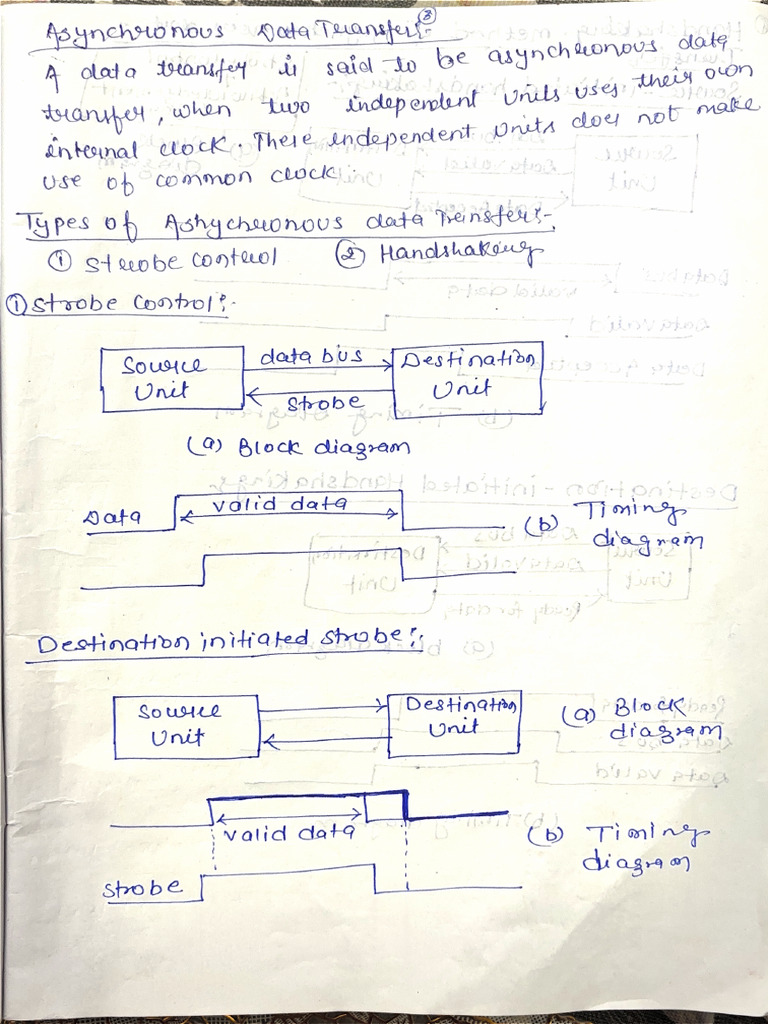 Asynchronous Data Transfer:-
A data transfer is said to be asynchronous data
transfer, when two independent units uses their own
internal clock. These independent units does not make
use of common clock.
Types of Ashychronous data Trensfer:-
① Strobe control ② Handshaking
① Strobe control:-
Source Unit
data bus
strobe
Destination Unit
(a) Block diagram
Data
valid data
(b) Timing diagram
Destination initiated strobe:-
Source Unit
Destination Unit
(a) Block diagram
valid data
(b) Timing diagram
Strobe